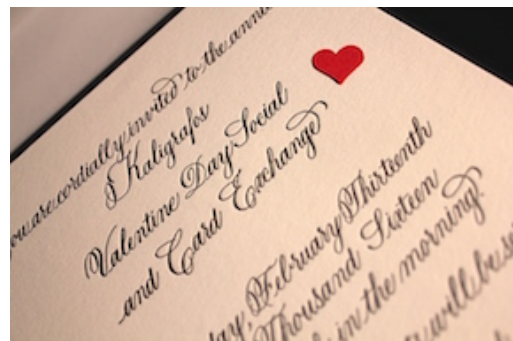 you are cordially invited to the
Kaligrafos
Valentine Day Social
and Card Exchange
February Thirteenth
Thousand Sixteen
in the morning
will be